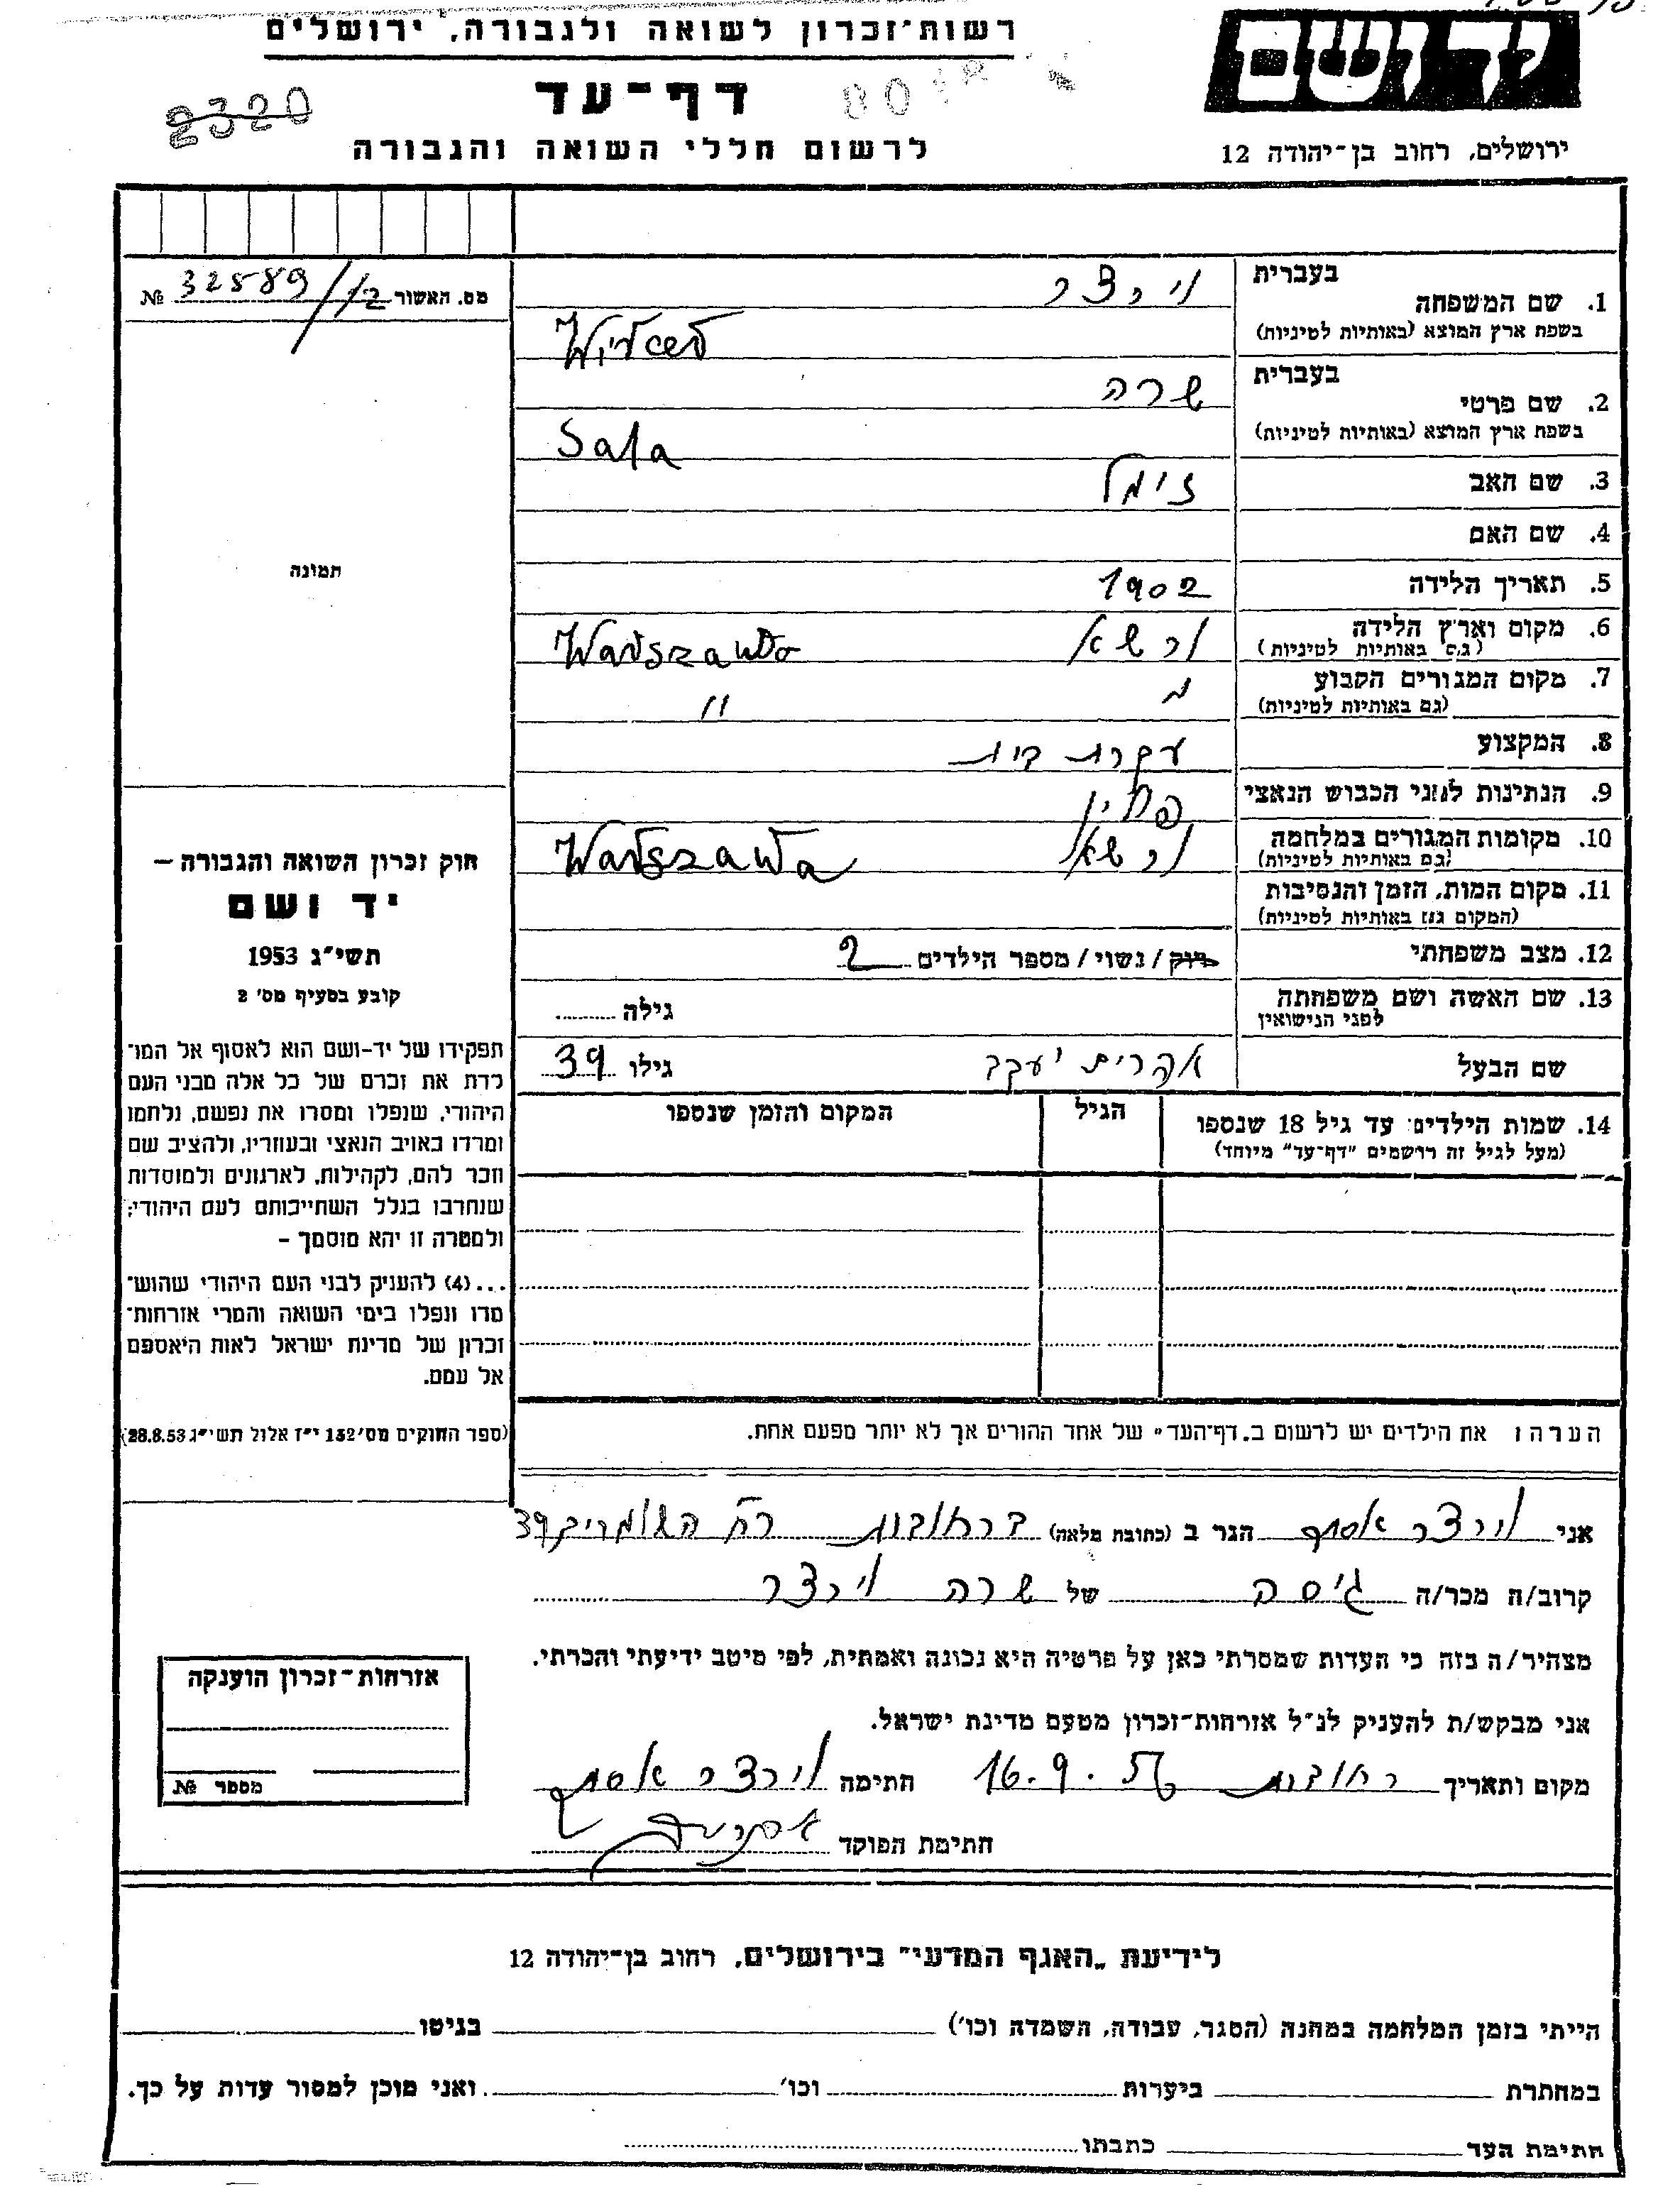 רשות־זכרון לשואה ולגבורה, ירושלים
יד ושם
דף־עד
2320
לרשום חללי השואה והגבורה
ירושלים, רחוב בן־יהודה 12
מס. האשור 32589/12 №
בעברית
1. שם המשפחה
וירצר
בשפת ארץ המוצא (באותיות לטיניות)
Wircer
בעברית
2. שם פרטי
שרה
בשפת ארץ המוצא (באותיות לטיניות)
Sala
3. שם האב
זימל
4. שם האם
5. תאריך הלידה 1902
6. מקום וארץ הלידה
(גם באותיות לטיניות)
ורשא Warszawa
7. מקום המגורים הקבוע
(גם באותיות לטיניות)
"
8. המקצוע עקרת בית
9. הנתינות לפני הכבוש הנאצי פולין
10. מקומות המגורים במלחמה
(גם באותיות לטיניות)
ורשא Warszawa
11. מקום המות, הזמן והנסיבות
(המקום גם באותיות לטיניות)
12. מצב משפחתי רווק / נשוי / מספר הילדים 2
13. שם האשה ושם משפחתה
לפני הנישואין
גילה
שם הבעל יעקב גילו 39
14. שמות הילדים עד גיל 18 שנספו
(מעל לגיל זה רושמים "דף־עד" מיוחד)
הגיל
המקום והזמן שנספו
הערה: את הילדים יש לרשום ב„דף־העד" של אחד ההורים אך לא יותר מפעם אחת.
תמונה
חוק זכרון השואה והגבורה –
יד ושם
תשי"ג 1953
קובע בסעיף מס' 2
תפקידו של יד-ושם הוא לאסוף אל המו־
לדת את זכרם של כל אלה מבני העם
היהודי, שנפלו ומסרו את נפשם, נלחמו
ומרדו באויב הנאצי ובעוזריו, ולהציב שם
וזכר להם, לקהילות, לארגונים ולמוסדות
שנחרבו בגלל השתייכותם לעם היהודי;
ולמטרה זו יהא מוסמך –
...(4) להעניק לבני העם היהודי שהוש־
מדו ונפלו בימי השואה והמרי אזרחות־
זכרון של מדינת ישראל לאות היאספם
אל עמם.
(ספר החוקים מס' 132 י"ז אלול תשי"ג 28.8.53)
אני וירצר אסתר הגר ב (כתובת מלאה) ברחובות רח 39
קרוב/ה מכר/ה גיסה של שרה וירצר
מצהיר/ה בזה כי העדות שמסרתי כאן על פרטיה היא נכונה ואמתית, לפי מיטב ידיעתי והכרתי.
אני מבקש/ת להעניק לנ"ל אזרחות־זכרון מטעם מדינת ישראל.
מקום ותאריך רחובות 16.9.56 חתימה וירצר אסתר
חתימת הפוקד
אזרחות־זכרון הוענקה
מספר №
לידיעת „האגף המדעי" בירושלים, רחוב בן־יהודה 12
הייתי בזמן המלחמה במחנה (הסגר, עבודה, השמדה וכו') בגיטו
במחתרת ביערות וכו' ואני מוכן למסור עדות על כך.
חתימת העד כתבתו